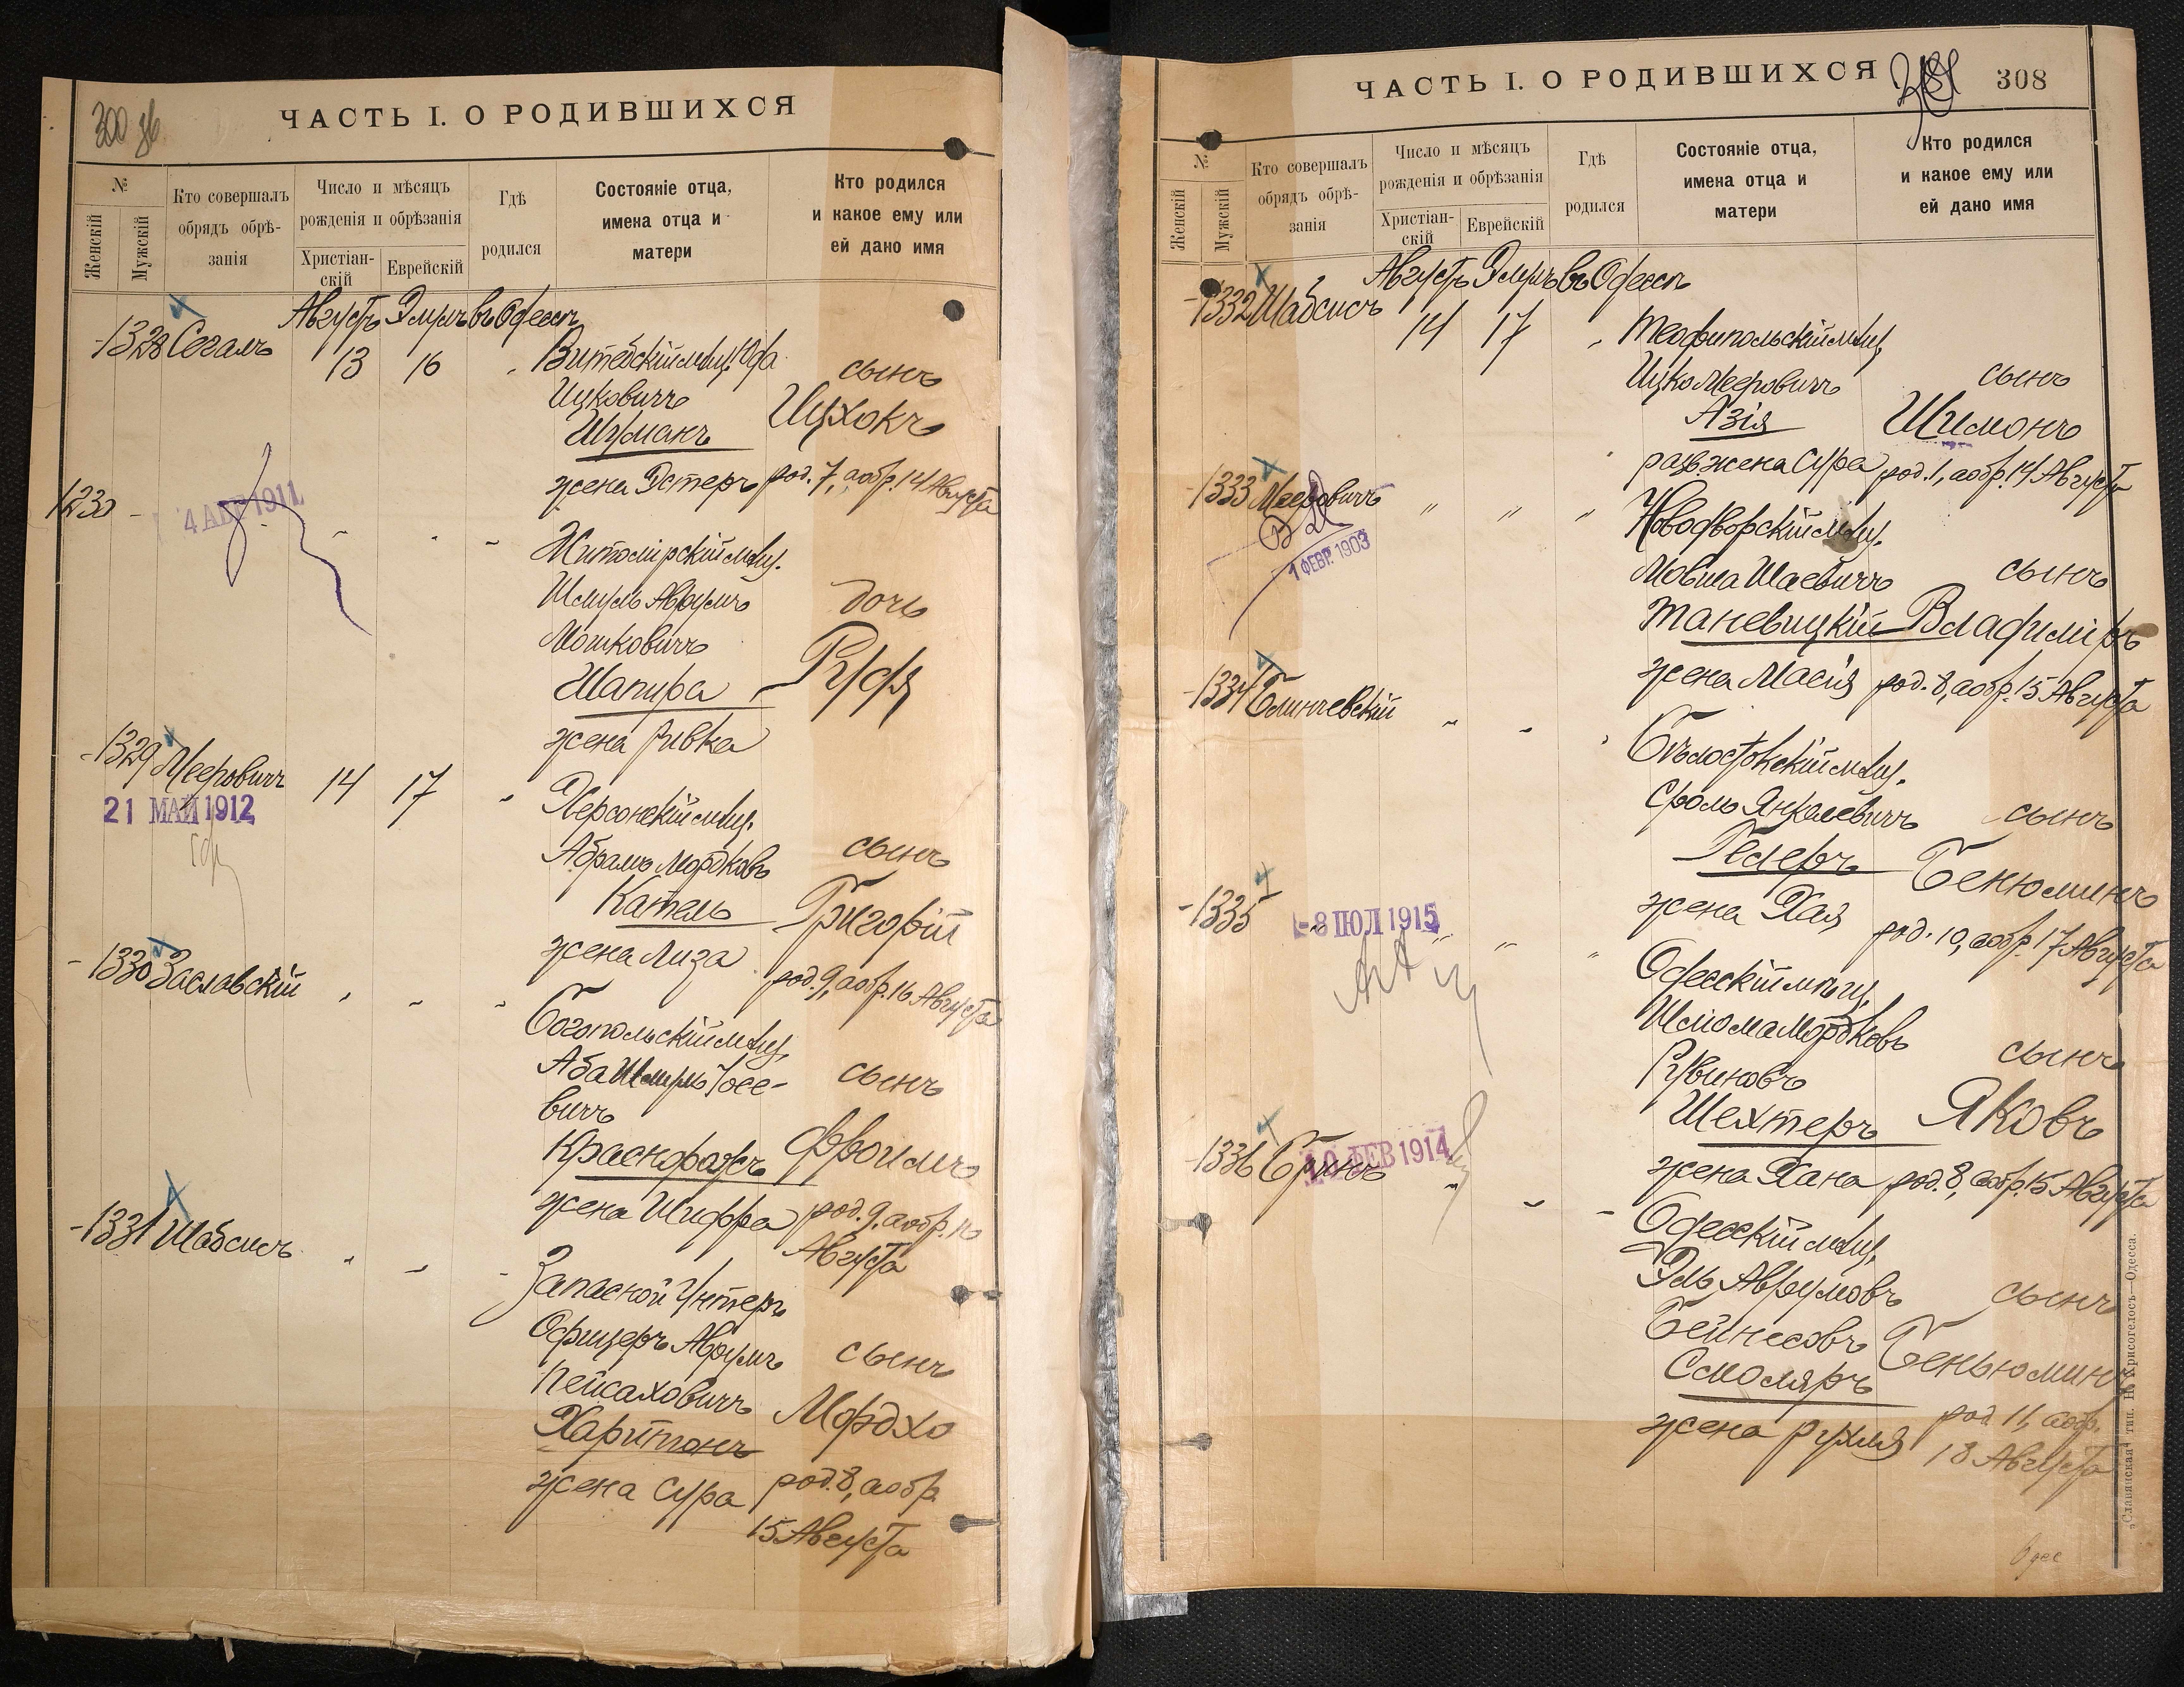 ЧАСТЬ I. О РОДИВШИХСЯ
№
Женскій
Мужскій
Кто совершалъ
обрядъ обрѣ-
занія
Число и мѣсяцъ
рожденія и обрѣзанія
Христіан-
скій
Еврейскій
Гдѣ
родился
Состояніе отца,
имена отца и
матери
Кто родился
и какое ему или
ей дано имя
Августъ Элулъ въ Одессѣ
1328 Сегалъ
13 16
Витебскій мѣщ.
Ицковичъ
Шуманъ
жена Эстеръ
сынъ
Ицхокъ
род. 7, а обр. 14 Августа
1230
4 АПР 1911
Житомірскій мѣщ.
Шмуль Аврумъ
Мошковичъ
Шапира
жена Ривка
дочь
Руфя
1329 Мееровичъ
21 МАЙ 1912
14 17
Херсонскій мѣщ.
Абрамъ Мордковъ
Катель
жена Лиза
сынъ
Григорій
род. 9, а обр. 16 Августа
1330 Заславскій
Богопольскій мѣщ.
Аба Шмуль Іосе-
вичъ
жена Шифра
сынъ
Фроимъ
род. 9, а обр. 16
Августа
1331 Шабсисъ
Запасной Унтеръ
Офицеръ Аврумъ
Пейсаховичъ
Харитонъ
жена Сура
сынъ
Мордхо
род. 8, а обр.
15 Августа
ЧАСТЬ I. О РОДИВШИХСЯ
308
№
Женскій
Мужскій
Кто совершалъ
обрядъ обрѣ-
занія
Число и мѣсяцъ
рожденія и обрѣзанія
Христіан-
скій
Еврейскій
Гдѣ
родился
Состояніе отца,
имена отца и
матери
Кто родился
и какое ему или
ей дано имя
Августъ Элулъ въ Одессѣ
1332 Шабсисъ
14 17
Теофипольскій мѣщ.
Ицко Мееровичъ
Азія
разв. жена Сура
сынъ
Шимонъ
род. 1, а обр. 14 Августа
1333 Мееровичъ
1 ФЕВР. 1903
Новодворскій мѣщ.
Мовша Шаевичъ
Таневицкій
жена Масія
сынъ
Владиміръ
род. 8, а обр. 15 Августа
1334 Блинчевскій
Бѣлостокскій мѣщ.
Сроль Янкелевичъ
Гелеръ
жена Хая
сынъ
Бенюминъ
род. 10, а обр. 17 Августа
1335
8 ІЮЛ 1915
Одесскій мѣщ.
Шлома Мордковъ
Рувиновъ
Шехтеръ
жена Хана
сынъ
Яковъ
род. 8, а обр. 15 Августа
1336 Гринъ
10 ФЕВ 1914
Одесскій мѣщ.
Эль Аврумовъ
Бейнесовъ
Смоляръ
жена Рухля
сынъ
Беньюминъ
род. 11, а обр.
18 Августа
„Славянская“ тип. Н. Хрисогелосъ—Одесса.